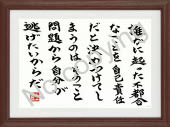 誰かに起った不都合
なことを自己責任
だと決めつけてし
まうのはそのこと
問題から自分が
逃げたいからだ
Not copying